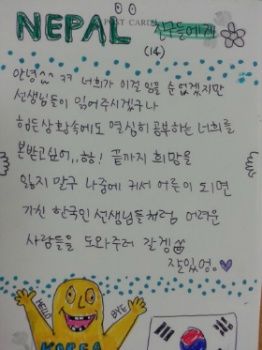 NEPAL
POST CARD
친구들에게
(14)
안녕^^ ㅋㅋ 너희가 이걸 읽을 순 없겠지만
선생님들이 읽어주시겠구나
힘든 상황속에도 열심히 공부하는 너희를
본받고싶어,,핳! 끝까지 희망을
잃지 말구 나중에 커서 어른이 되면
가친 한국인 선생님들처럼 어려운
사람들을 도와주러 갈겡
잘있엉.
HELLO
BYE
KOREA